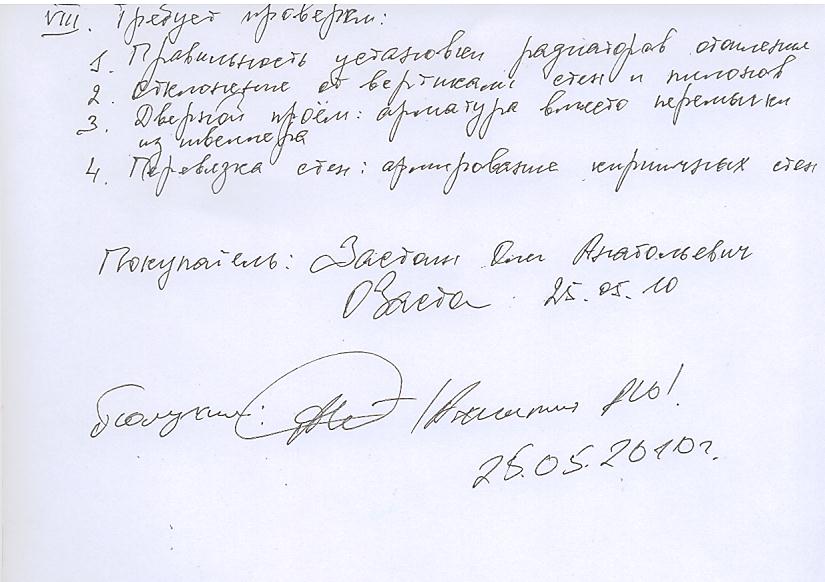 VIII. Требует проверки:
1. Правильность установки радиаторов отопления
2. Отклонение от вертикали стен и пилонов
3. Дверной проём: арматура вместо перемычки
из швеллера
4. Перевязка стен: армирование кирпичных стен
Покупатель: Олег Анатольевич
25.05.10
Получил:
25.05.2010г.